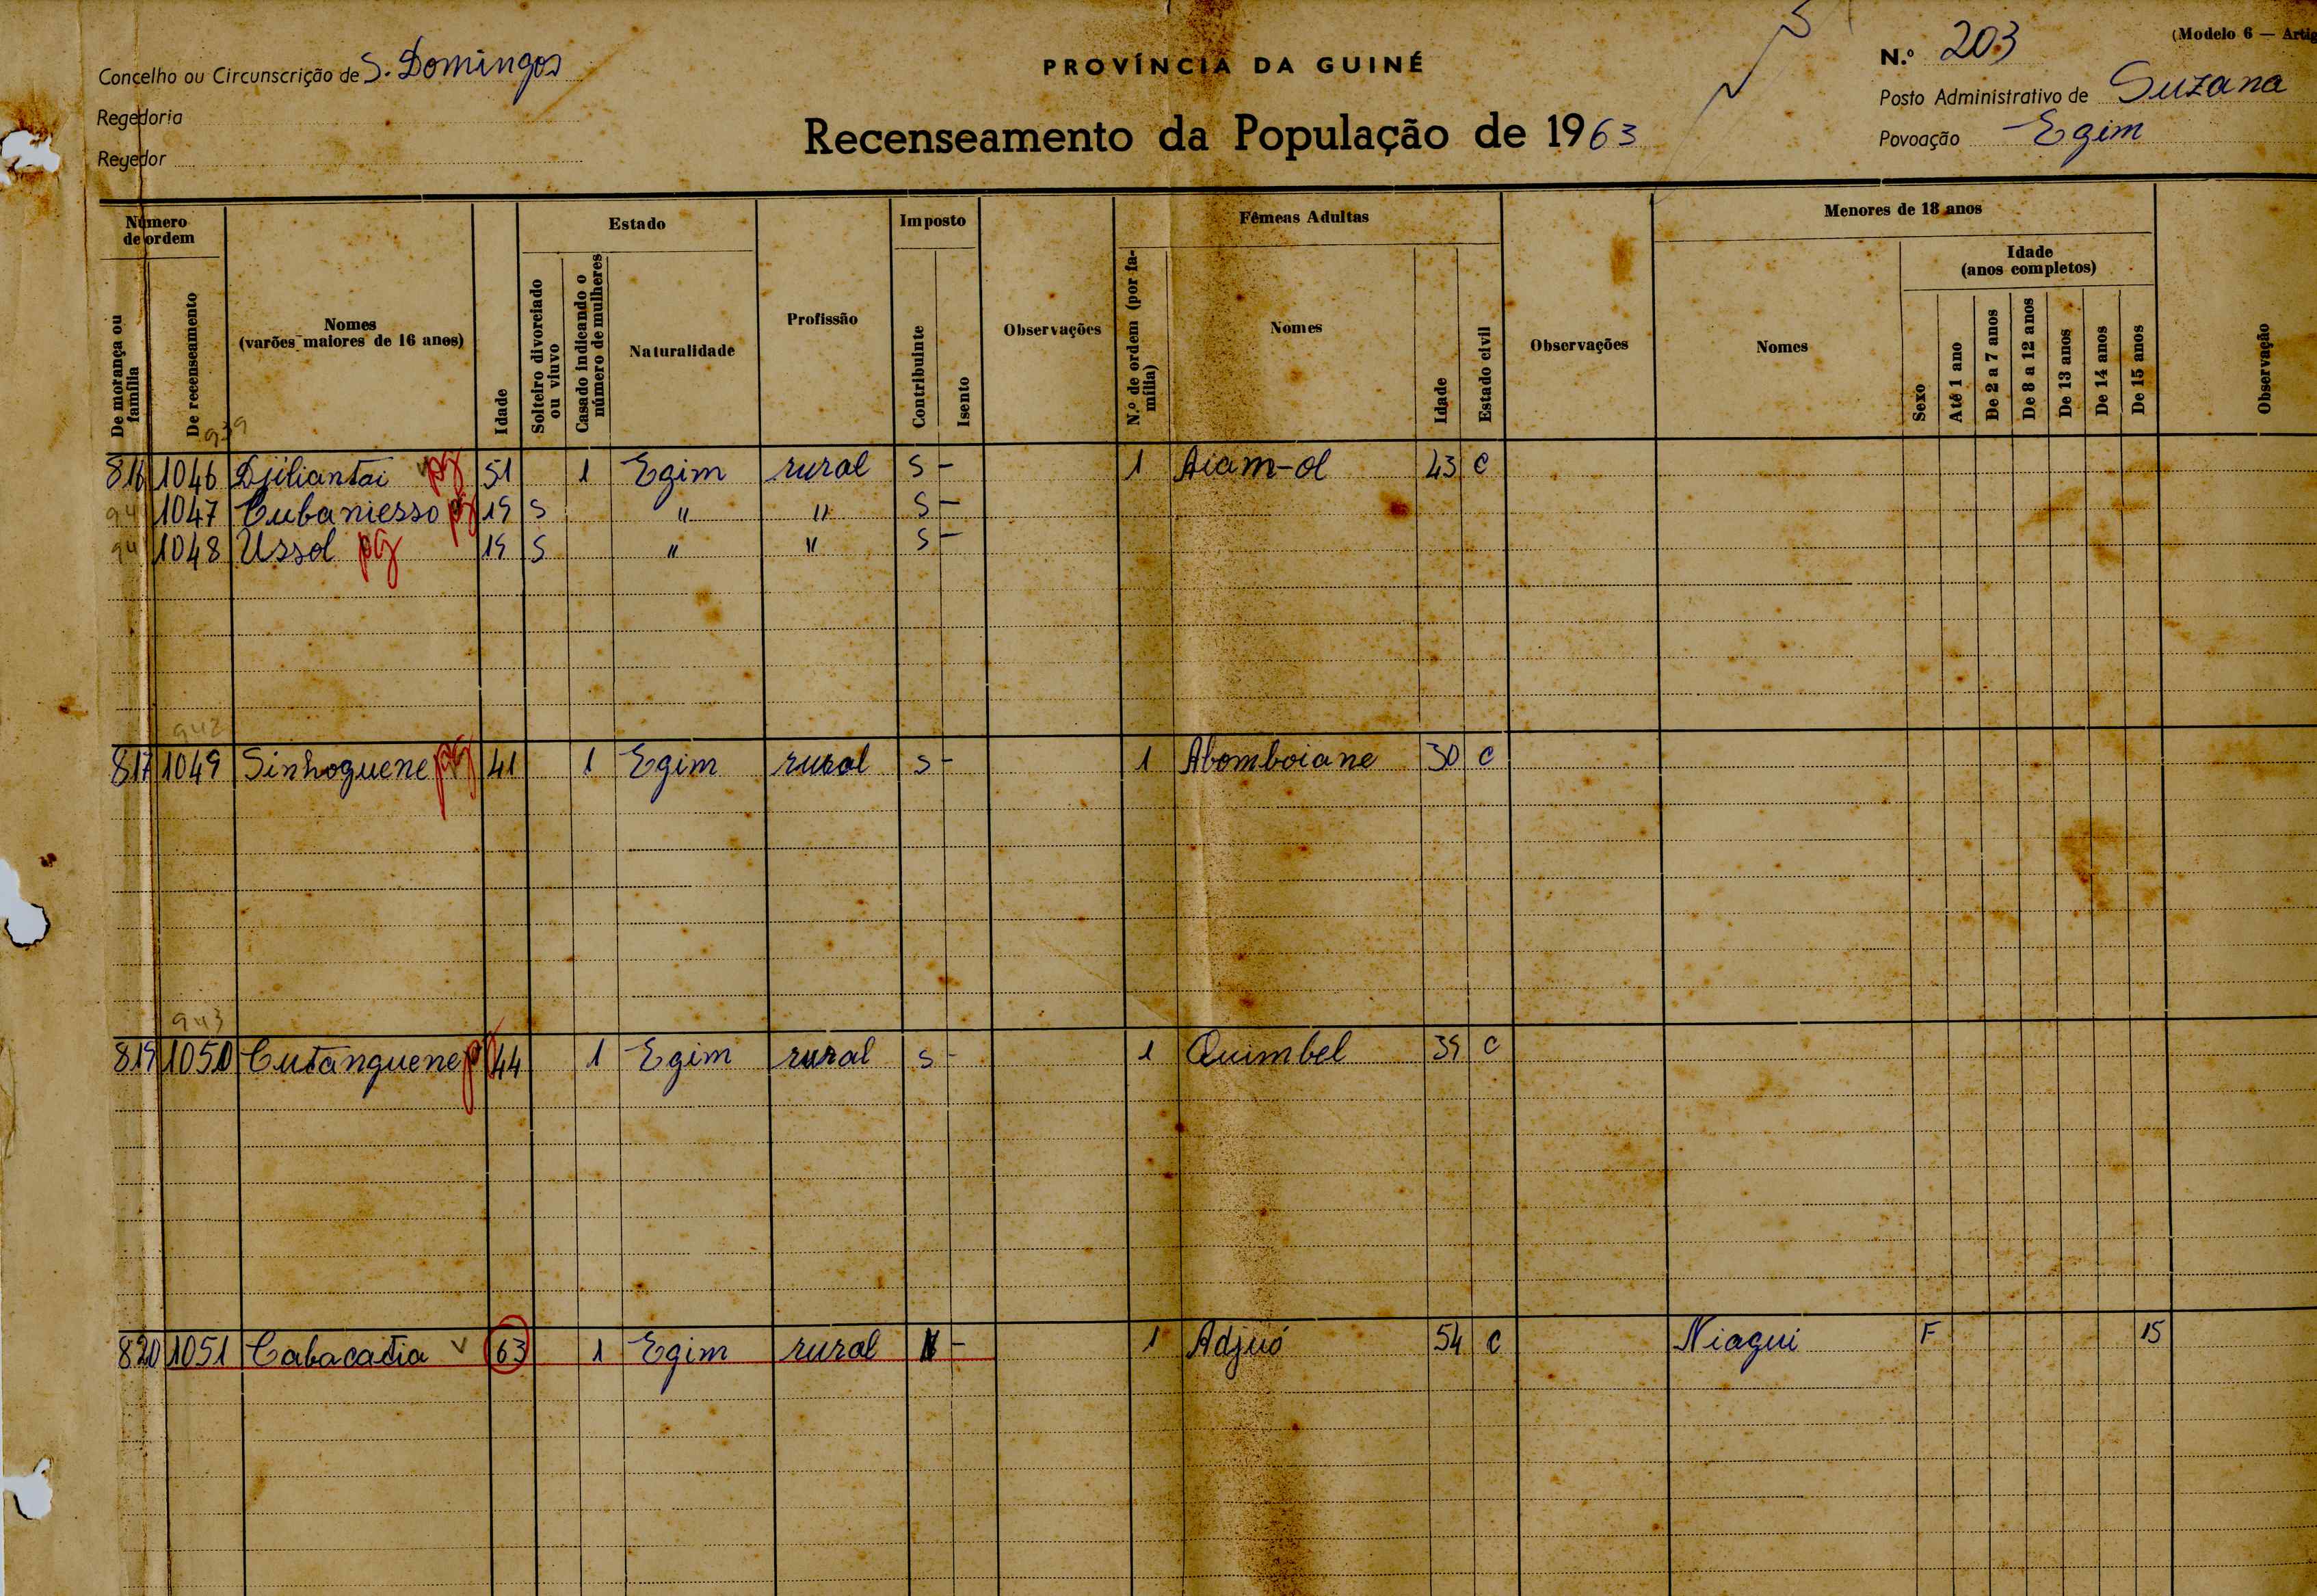 (Modelo 6 — Artig
Concelho ou Circunscrição de S. Domingos
PROVÍNCIA DA GUINÉ
N.º 203
Regedoria
Posto Administrativo de Suzana
Regedor
Recenseamento da População de 1963
Povoação Egim
Número de ordem
Estado
Imposto
Fêmeas Adultas
Menores de 18 anos
Idade (anos completos)
De morança ou família
De recenseamento
Nomes (varões maiores de 16 anos)
Idade
Solteiro divorciado ou viuvo
Casado indicando o número de mulheres
Naturalidade
Profissão
Contribuinte
Isento
Observações
N.º de ordem (por família)
Nomes
Idade
Estado civil
Observações
Nomes
Sexo
Até 1 ano
De 2 a 7 anos
De 8 a 12 anos
De 13 anos
De 14 anos
De 15 anos
Observação
939
816 1046 Djiliantai pg 51 1 Egim rural S - 1 Aiam-ol 43 C
1047 Cubaniesso pg 19 S " " S -
1048 Ussol pg 19 S " " S -
942
817 1049 Sinhoguene pg 41 1 Egim rural S - 1 Abomboiane 30 C
943
819 1050 Cutanguene 44 1 Egim rural S - 1 Quimbel 39 C
820 1051 Cabacatia v 63 1 Egim rural - 1 Adjuó 54 C Niagui F 15